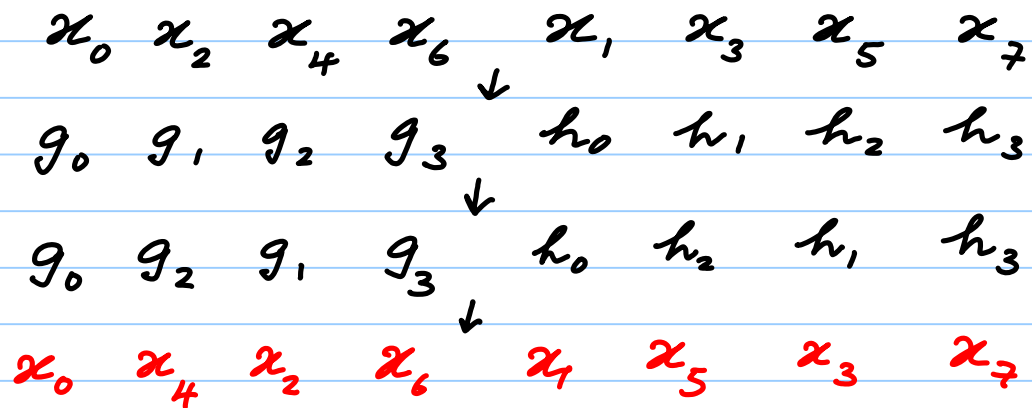 x₀ x₂ x₄ x₆ x₁ x₃ x₅ x₇
↓
g₀ g₁ g₂ g₃ h₀ h₁ h₂ h₃
↓
g₀ g₂ g₁ g₃ h₀ h₂ h₁ h₃
↓
x₀ x₄ x₂ x₆ x₁ x₅ x₃ x₇